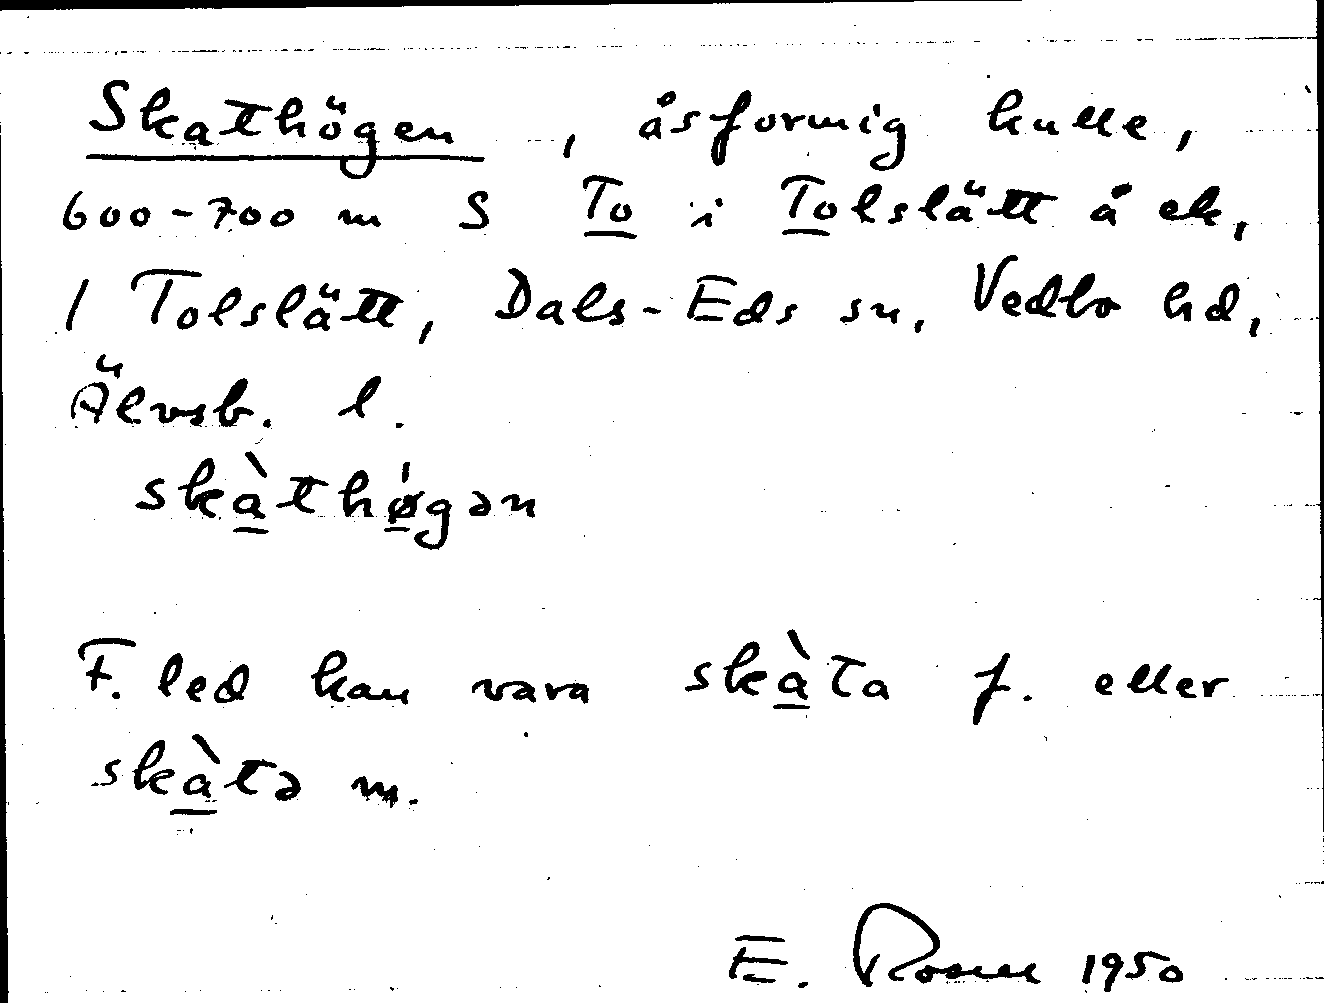 Skathögen, åsformig kulle,
600-700 m S To i Tolslätt å ek,
1 Tolslätt, Dals-Eds sn, Vedbo hd,
Älvsb. l.
skàthǿgən
F. led kan vara skàta f. eller
skàtə m.
E. 1950